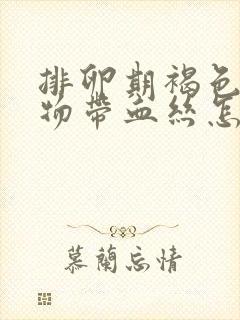 排卵期褐色
物带血丝怎
慕蘭忘情